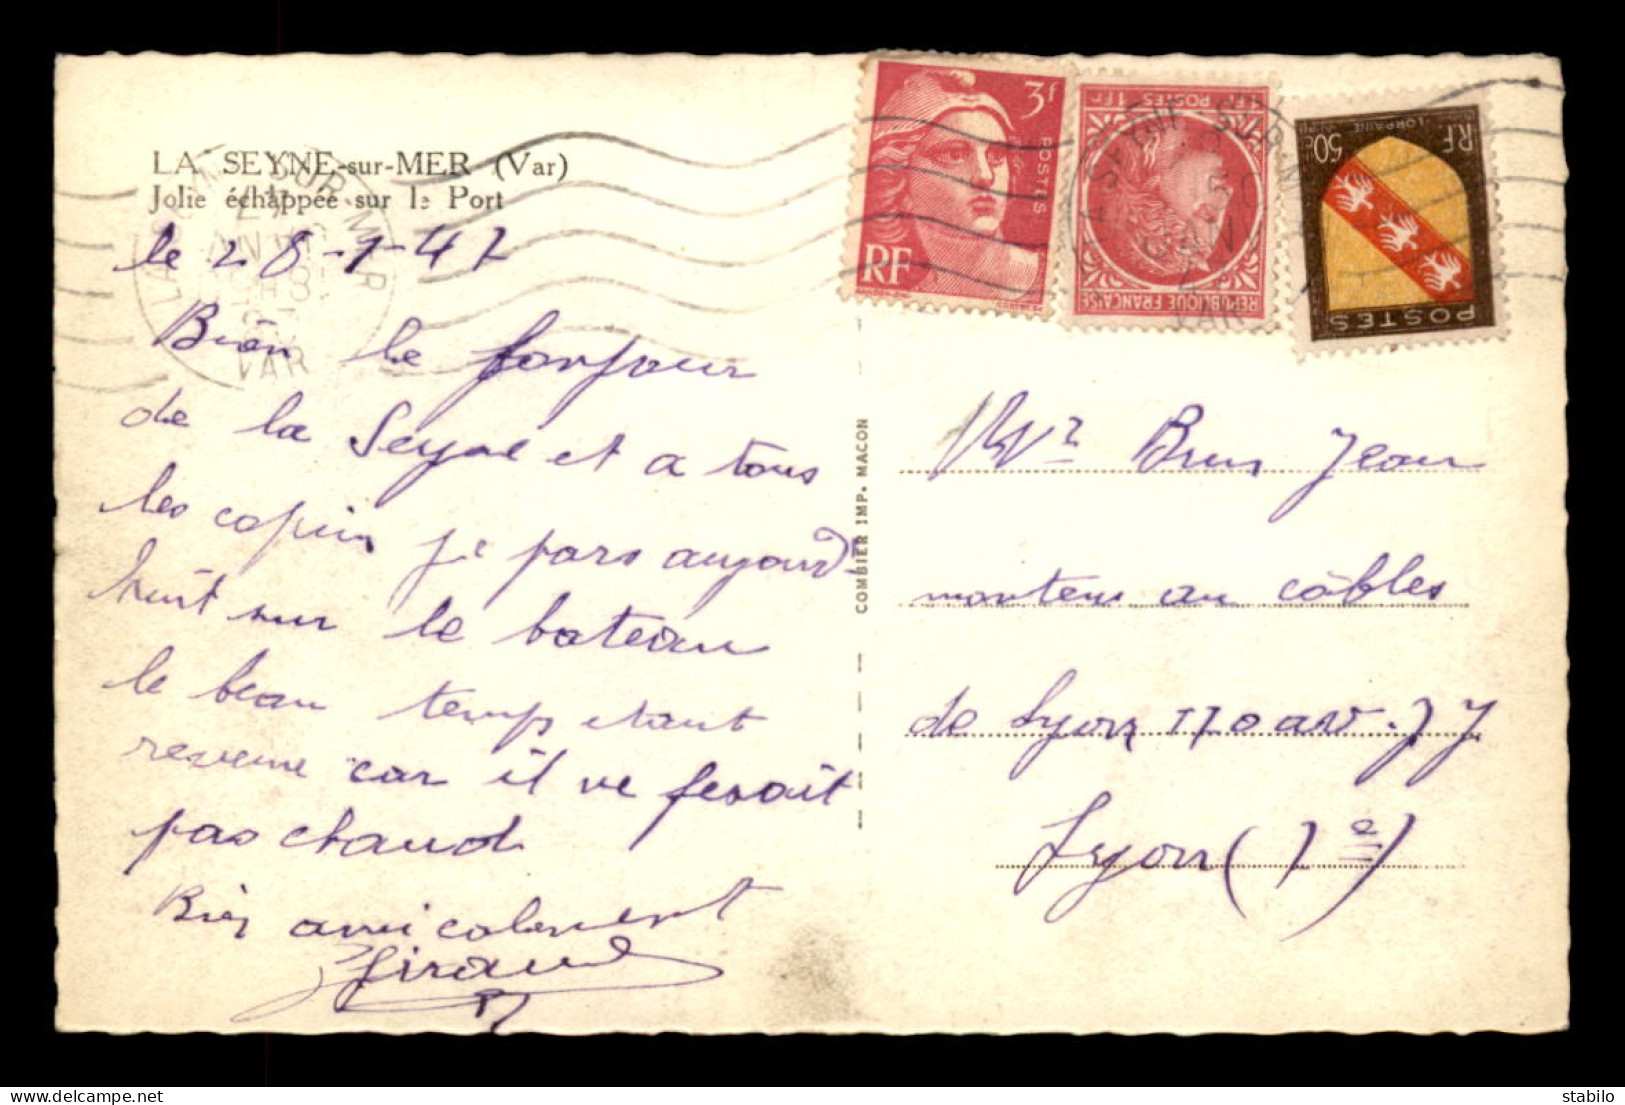 LA SEYNE-sur-MER (Var)
Jolie échappée sur le Port
le 28-1-47
Bien le bonjour
de la Seyne et a tous
les copin je pars aujourd-
huit sur le bateau
le beau temps etant
revenue car il ne fesait
pas chaud
Bien amicalement
Giraud
COMBIER IMP. MACON
3f
POSTES
RF
1Fr POSTES 1Fr
RÉPUBLIQUE FRANÇAISE
RF LORRAINE 50c
POSTES
LA SEYNE SUR MER
VAR
LA SEYNE SUR MER
VAR
Mr Brun Jean
monteur au câbles
de Lyon 170 av. J J
Lyon (7e)
stabilo